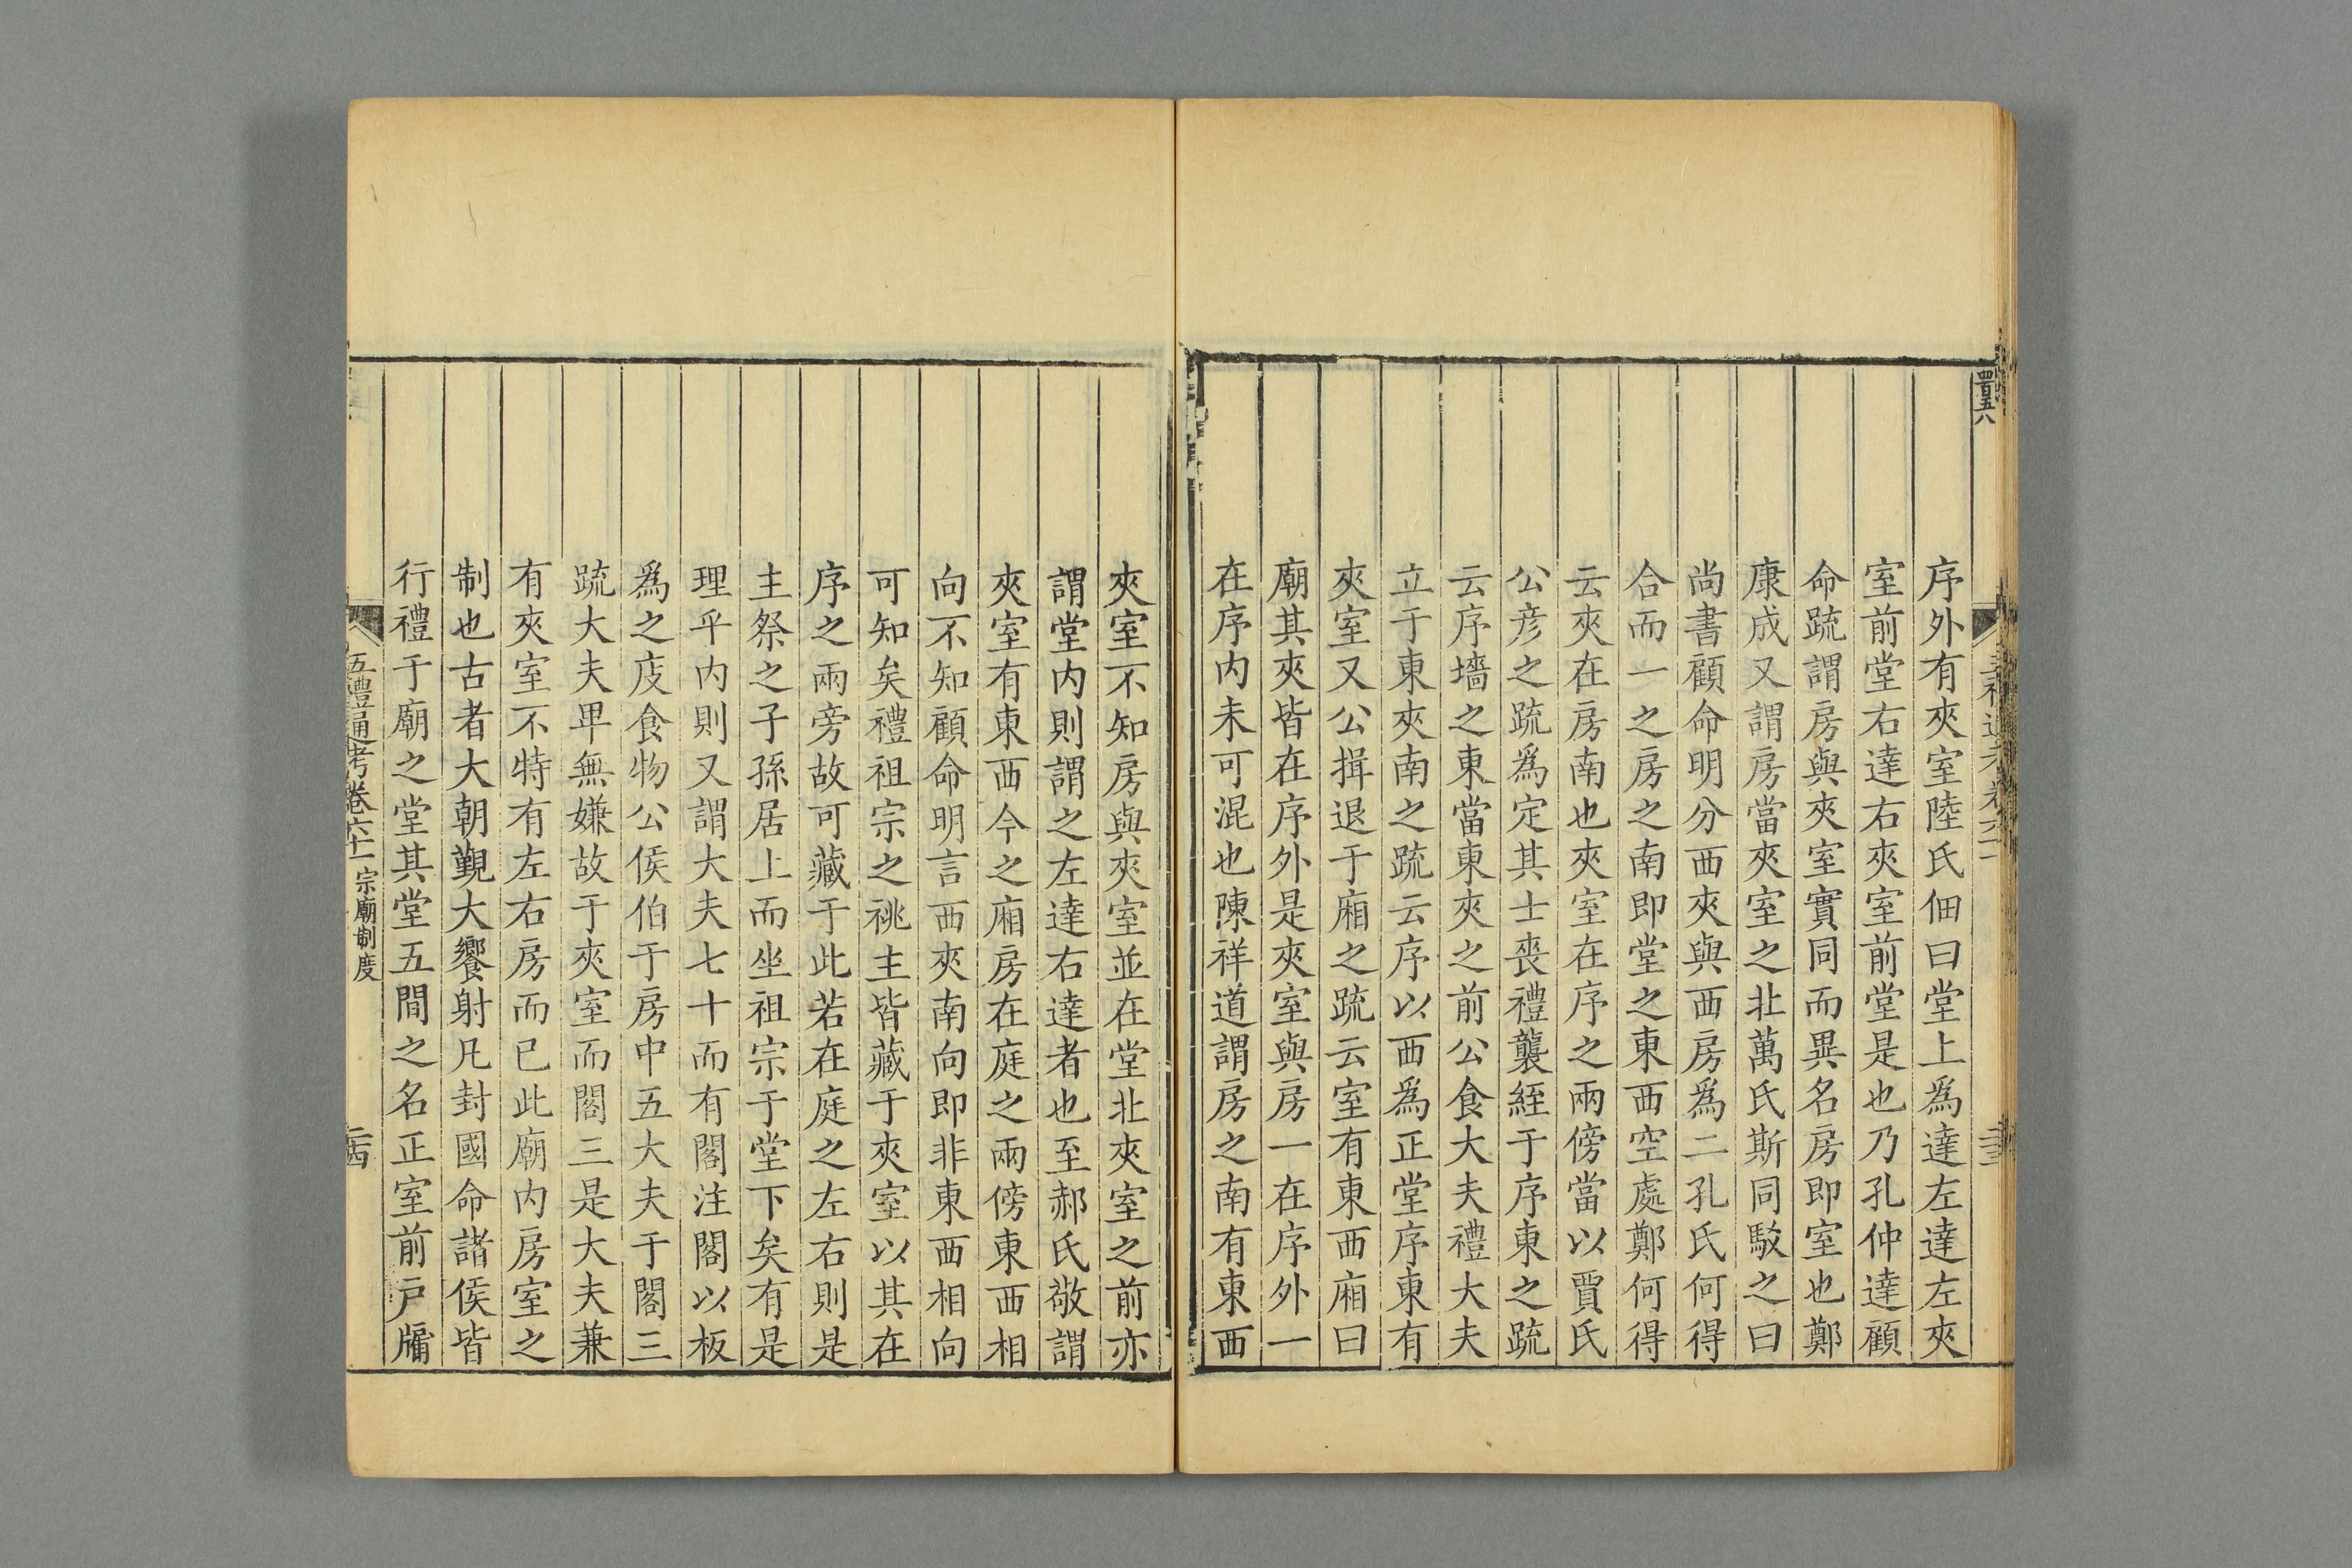 序外有夾室陸氏佃曰堂上爲達左達左夾
室前堂右達右夾室前堂是也乃孔仲達顧
命疏謂房與夾室實同而異名房即室也鄭
康成又謂房當夾室之北萬氏斯同駁之曰
尚書顧命明分西夾與西房爲二孔氏何得
合而一之房之南即堂之東西空處鄭何得
云夾在房南也夾室在序之兩傍當以賈氏
公彦之疏爲定其士喪禮襲絰于序東之疏
云序墻之東當東夾之前公食大夫禮大夫
立于東夾南之疏云序以西爲正堂序東有
夾室又公揖退于廂之疏云室有東西廂曰
廟其夾皆在序外是夾室與房一在序外一
在序内未可混也陳祥道謂房之南有東西
夾室不知房與夾室並在堂北夾室之前亦
謂堂内則謂之左達右達者也至郝氏敬謂
夾室有東西今之廂房在庭之兩傍東西相
向不知顧命明言西夾南向即非東西相向
可知矣禮祖宗之祧主皆藏于夾室以其在
序之兩旁故可藏于此若在庭之左右則是
主祭之子孫居上而坐祖宗于堂下矣有是
理乎内則又謂大夫七十而有閣注閣以板
爲之庋食物公侯伯于房中五大夫于閣三
疏大夫卑無嫌故于夾室而閣三是大夫兼
有夾室不特有左右房而已此廟内房室之
制也古者大朝覲大饗射凡封國命諸侯皆
行禮于廟之堂其堂五間之名正室前戸牖
五禮通考卷六十一宗廟制度